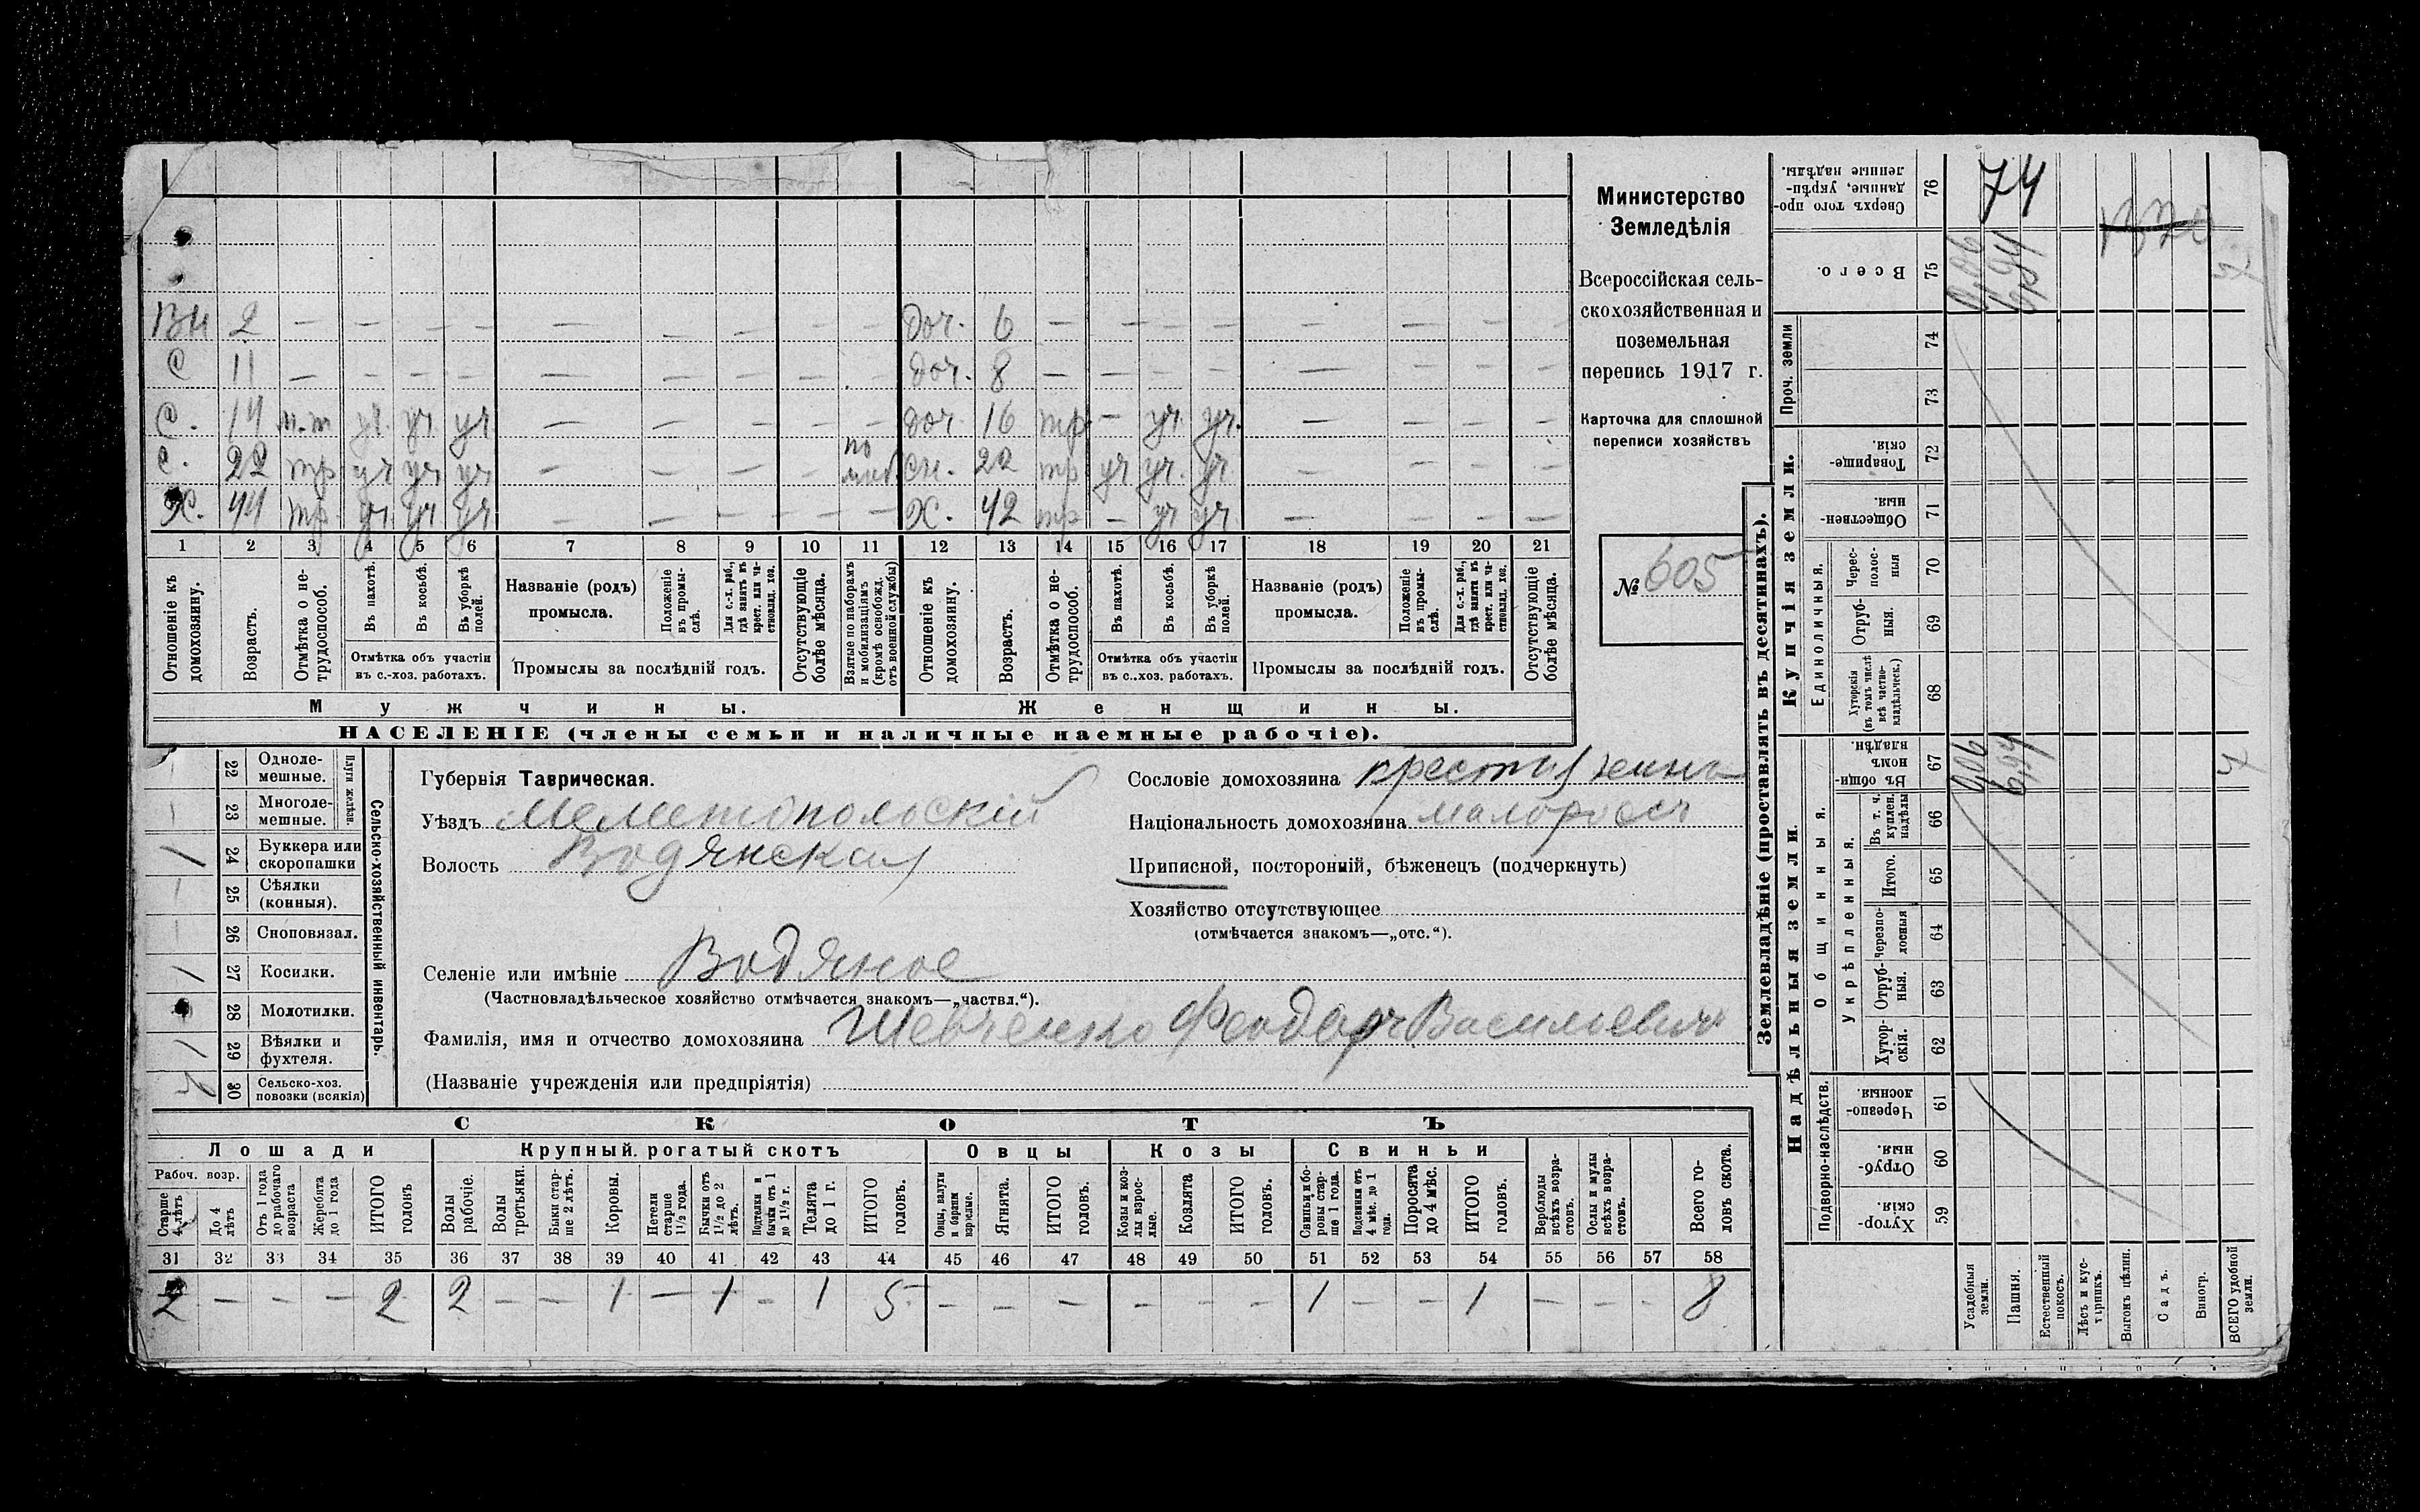 Министерство
Земледѣлія
Всероссійская сель-
скохозяйственная и
поземельная
перепись 1917 г.
Карточка для сплошной
переписи хозяйствъ
№ 605
Вн 2 — — — — — — — — — доч. 6 — — — — — — — —
С 11 — — — — — — — — доч. 8 — — — — — — — —
С. 14 п.т уч. уч. уч — — — — — доч. 16 тр — уч. уч. — — — —
С. 22 тр уч уч. уч. — — — — по моб. сн. 22 тр уч уч. уч — — — —
Х. 44 тр. уч. уч уч — — — — — Х. 42 тр — уч уч — — — —
1 2 3 4 5 6 7 8 9 10 11 12 13 14 15 16 17 18 19 20 21
Отношеніе къ домохозяину.
Возрастъ.
Отмѣтка о не-трудоспособ.
Въ пахотѣ.
Въ косьбѣ.
Въ уборкѣ полей.
Отмѣтка объ участіи
въ с.-хоз. работахъ.
Названіе (родъ)
промысла.
Положеніе въ промы-слѣ.
Для с.-х. раб., гдѣ занятъ въ крест. или ча-стновлад. хоз.
Промыслы за послѣдній годъ.
Отсутствующіе болѣе мѣсяца.
Взятые по наборамъ и мобилизаціямъ (кромѣ освобожд. отъ военной службы)
Отношеніе къ домохозяину.
Возрастъ.
Отмѣтка о не-трудоспособ.
Въ пахотѣ.
Въ косьбѣ.
Въ уборкѣ полей.
Отмѣтка объ участіи
въ с..хоз. работахъ.
Названіе (родъ)
промысла.
Положеніе въ промы-слѣ.
Для с.-х. раб., гдѣ занятъ въ крест. или ча-стновлад. хоз.
Промыслы за послѣдній годъ.
Отсутствующіе болѣе мѣсяца.
Мужчины.
Женщины.
НАСЕЛЕНІЕ (члены семьи и наличные наемные рабочіе).
Сельско-хозяйственный инвентарь.
Плуги желѣзн.
— 22 Однолемешные.
— 23 Многолемешные.
1 24 Буккера или скоропашки
— 25 Сѣялки (конныя).
— 26 Сноповязал.
1 27 Косилки.
28 Молотилки.
1 29 Вѣялки и фухтеля.
30 Сельско-хоз. повозки (всякія)
Губернія Таврическая.
Уѣздъ Мелитопольскій
Волость Водянская
Селеніе или имѣніе Водяное
(Частновладѣльческое хозяйство отмѣчается знакомъ—„частвл.“).
Фамилія, имя и отчество домохозяина Шевченко Феодоръ Васильевич
(Названіе учрежденія или предпріятія)
Сословіе домохозяина крестьянинъ
Національность домохозяина малороссъ
Приписной, посторонній, бѣженецъ (подчеркнуть)
Хозяйство отсутствующее
(отмѣчается знакомъ—„отс.“).
СКОТЪ
Лошади
Крупный рогатый скотъ
Овцы
Козы
Свиньи
Рабоч. возр.
Старше 4 лѣтъ
До 4 лѣтъ
Отъ 1 года до рабочаго возраста
Жеребята до 1 года
ИТОГО головъ
Волы рабочіе.
Волы третьяки.
Быки стар-ше 2 лѣтъ.
Коровы.
Нетели старше 1½ года.
Бычки отъ 1½ до 2 лѣтъ.
Подтелки и бычки отъ 1 до 1½ г.
Телята до 1 г.
ИТОГО головъ.
Овцы, валухи и бараны взрослые.
Ягнята.
ИТОГО головъ.
Козы и коз-лы взрос-лые.
Козлята
ИТОГО головъ.
Свиньи и бо-ровы стар-ше 1 года.
Подсвинки отъ 4 мѣс. до 1 года.
Поросята до 4 мѣс.
ИТОГО головъ.
Верблюды всѣхъ возра-стовъ.
Ослы и мулы всѣхъ возра-стовъ.
Всего го-ловъ скота.
31 32 33 34 35 36 37 38 39 40 41 42 43 44 45 46 47 48 49 50 51 52 53 54 55 56 57 58
2 — — — 2 2 — — 1 — 1 — 1 5 — — — — — — 1 — — 1 — — — 8
Землевладѣніе (проставлять въ десятинахъ).
Купчія земли.
Надѣльныя земли.
Сверхъ того про-данные, укрѣп-ленные надѣлы. 76 74
Всего. 75 0,06 6,94
Проч. земли
74
73
Товарище-скія. 72
Обществен-ныя. 71
Единоличныя.
Черес-полос-ныя 70
Отруб-ныя. 69
Хуторскія (въ томъ числѣ всѣ частно-владѣльческ.) 68
Общинныя.
Въ общин-номъ владѣн. 67 0,06 6,94 7
Укрѣпленныя.
Въ т. ч. куплен. надѣлы 66
Итого. 65
Черезпо-лосныя 64
Отруб-ныя. 63
Хутор-скія. 62
Подворно-наслѣдств.
Черезпо-лосныя 61
Отруб-ныя. 60
Хутор-скія. 59
Усадебныя земли.
Пашня.
Естественный покосъ.
Лѣсъ и кус-тарникъ.
Выгонъ цѣлин.
Садъ.
Виногр.
ВСЕГО удобной земли.